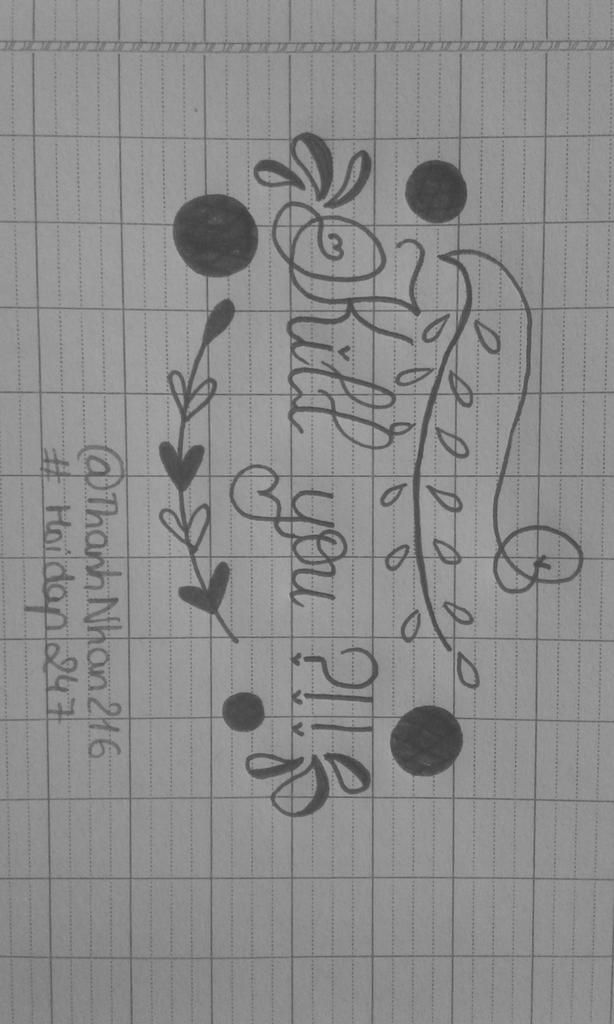 Kill you ?!!
@ThanhNhan216
# Haidan247